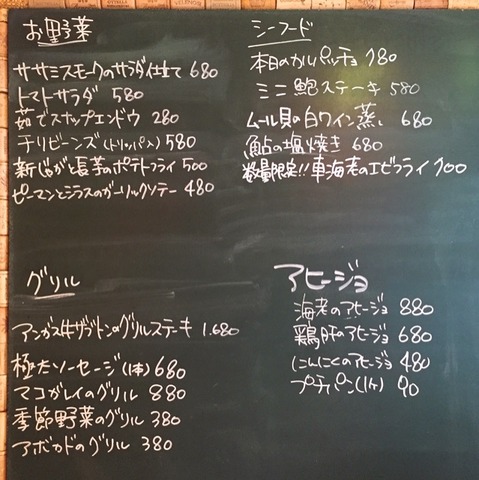 お野菜
ササミスモークのサラダ仕立て 680
トマトサラダ 580
茹でスナップエンドウ 280
チリビーンズ(トリッパ入) 580
新じゃがと長芋のポテトフライ 500
ピーマンとシラスのガーリックソテー 480
シーフード
本日のカルパッチョ 780
ミニ鮑ステーキ 580
ムール貝の白ワイン蒸し 680
鮎の塩焼き 680
数量限定!!車海老のエビフライ 700
グリル
アンガス牛ザブトンのグリルステーキ 1.680
極太ソーセージ(1本) 680
マコガレイのグリル 880
季節野菜のグリル 380
アボカドのグリル 380
アヒージョ
海老のアヒージョ 880
鶏肝のアヒージョ 680
にんにくのアヒージョ 480
プチパン(1ケ) 90